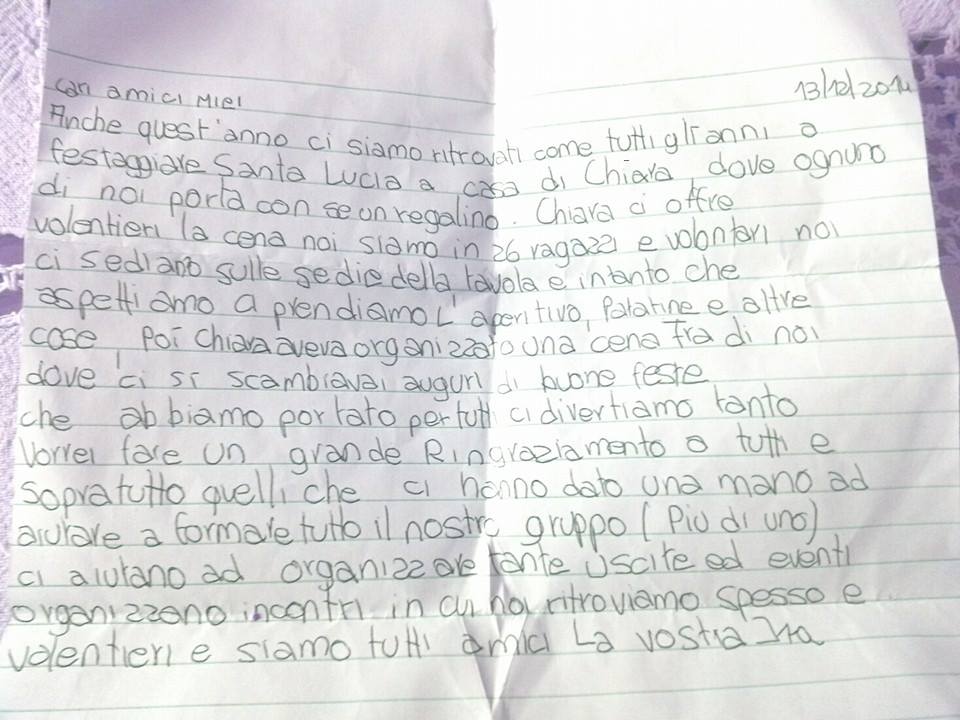 cari amici miei 13/12/2014
Anche quest'anno ci siamo ritrovati come tutti gli anni a
festaggiare Santa Lucia a casa di Chiara, dove ognuno
di noi porta con se un regalino. Chiara ci offre
volentieri la cena noi siamo in 26 ragazzi e volontari noi
ci sediamo sulle sedie della tavola e intanto che
aspettiamo a prendiamo l'aperitivo, Patatine e altre
cose, Poi Chiara aveva organizzato una cena Fra di noi
dove ci si scambiavai auguri di buone feste
che abbiamo portato per tutti ci divertiamo tanto
Vorrei fare un grande Ringraziamento a tutti e
sopratutto quelli che ci hanno dato una mano ad
aiutare a formare tutto il nostro gruppo (Più di uno)
ci aiutano ad organizzare tante uscite ed eventi
organizzano incontri in cui noi ritroviamo spesso e
valentieri e siamo tutti amici La vostra